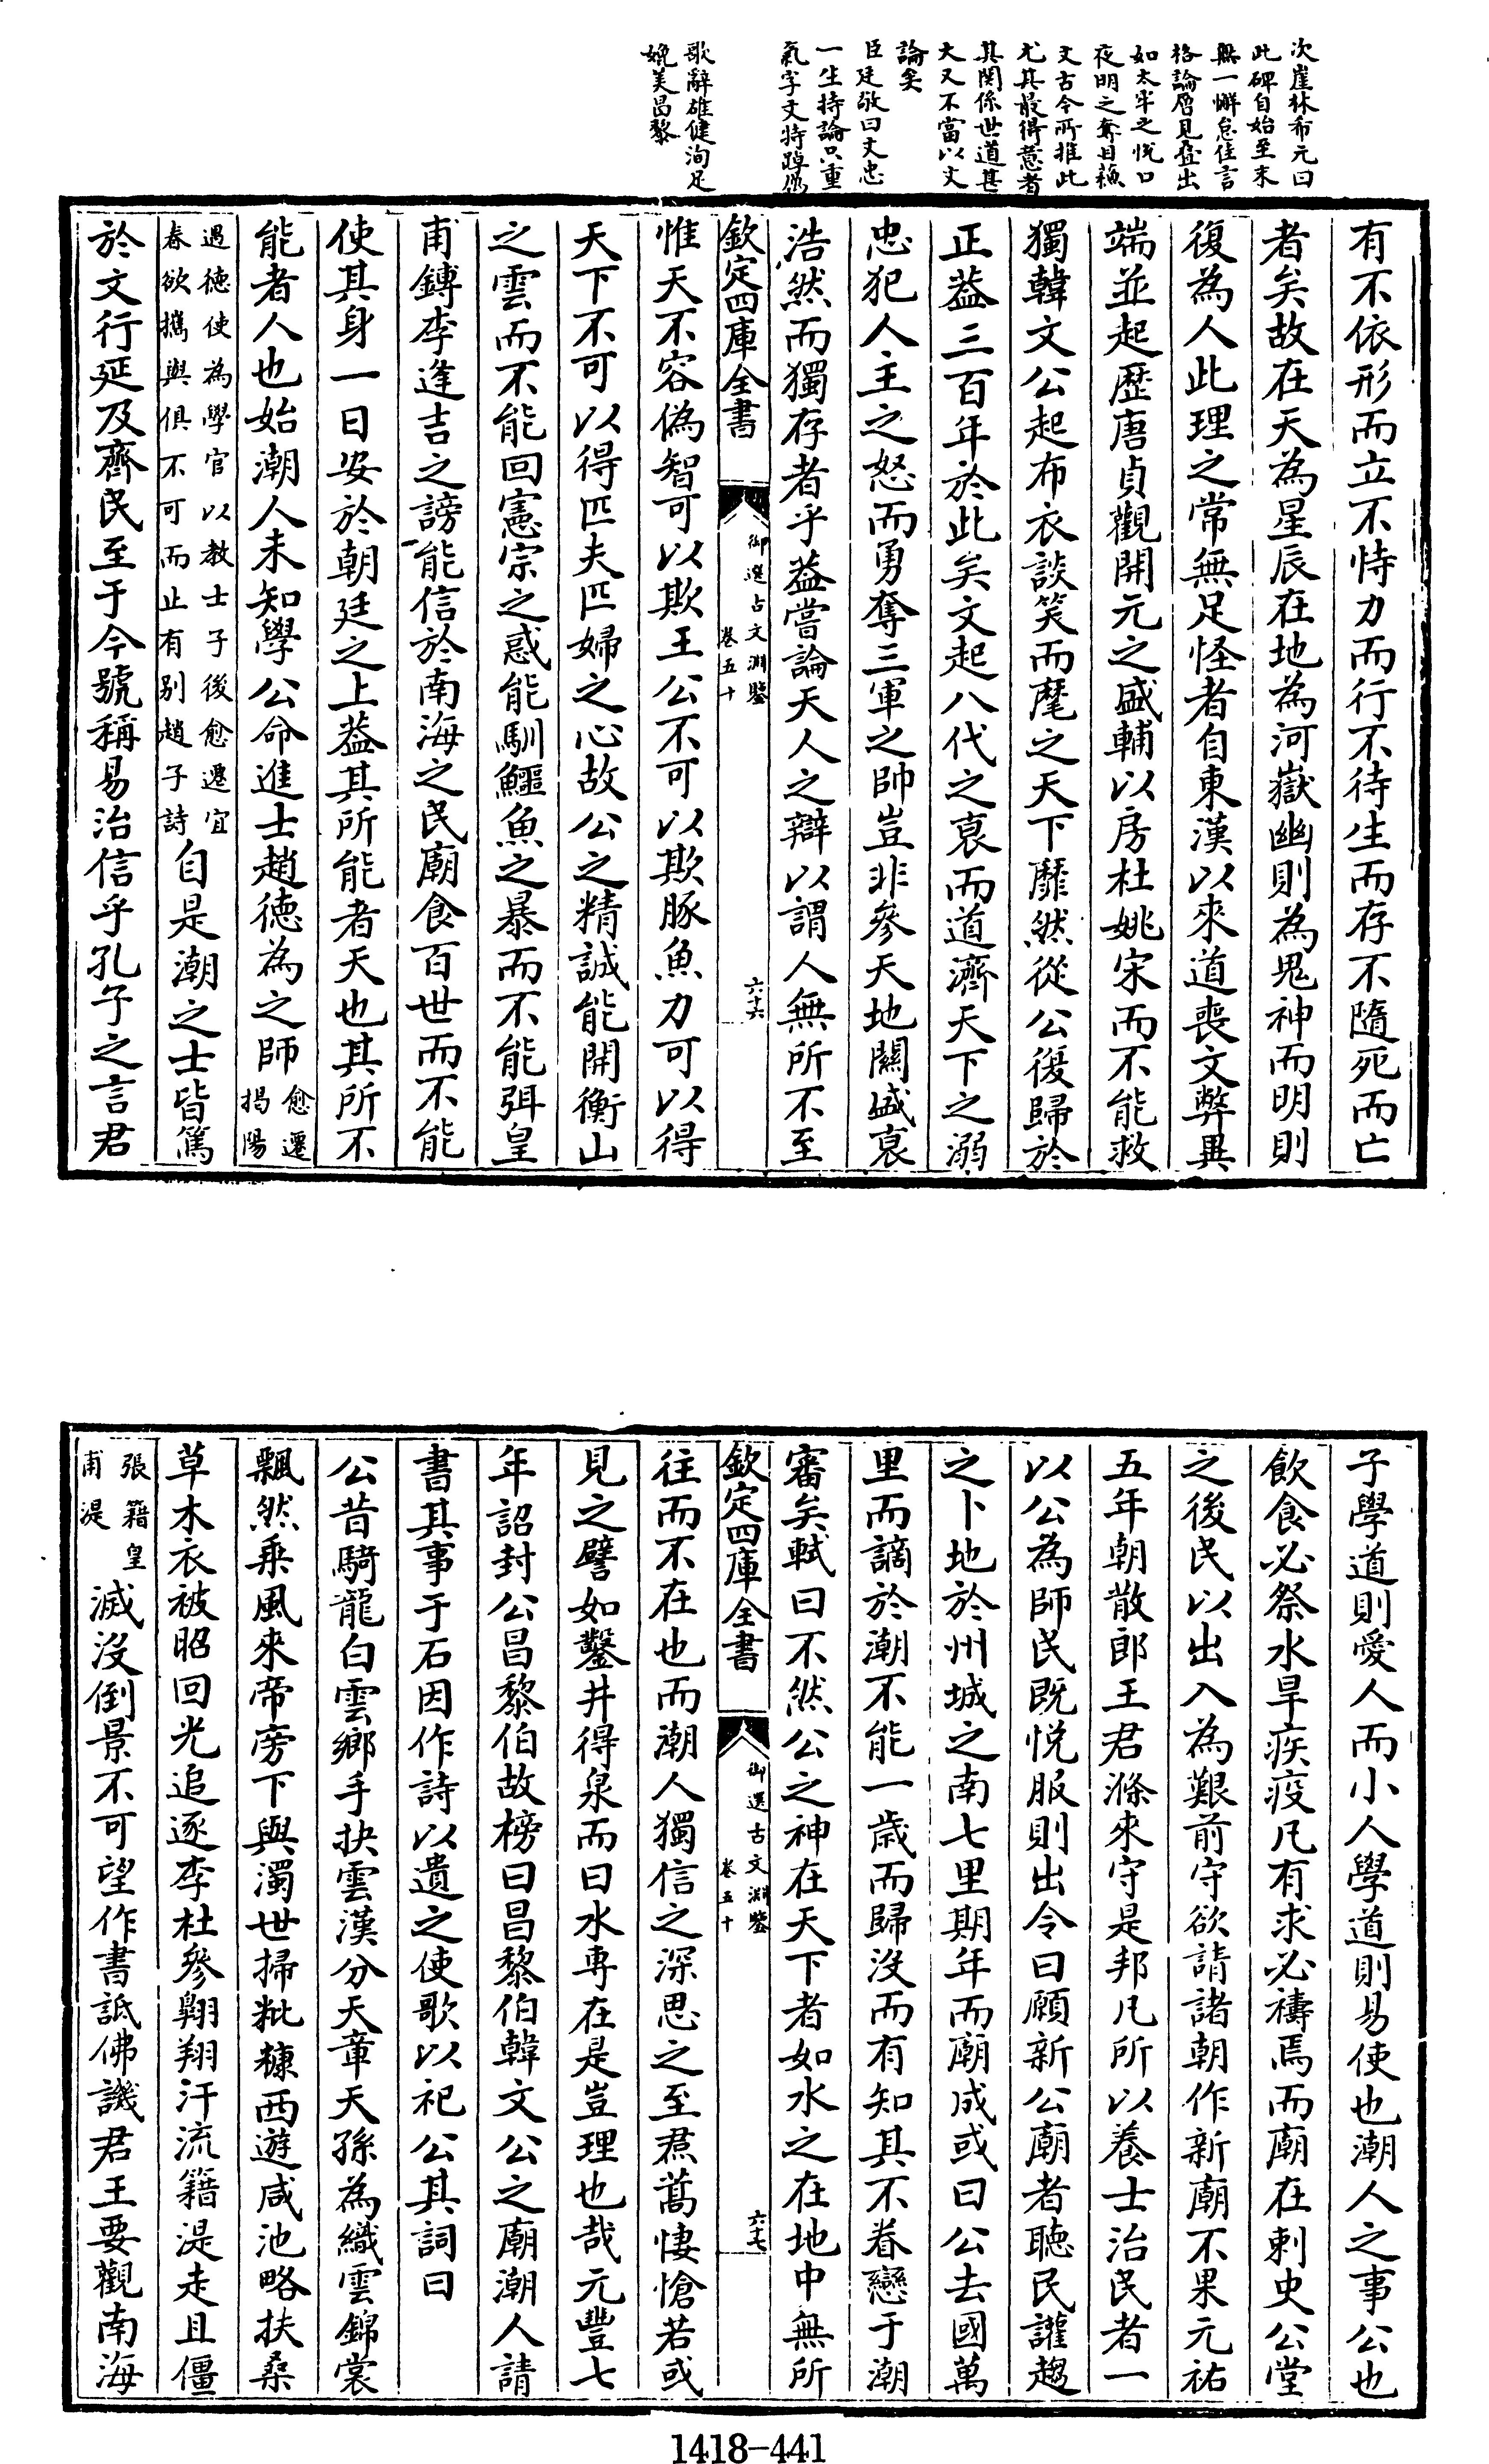 次崖林希元曰
此碑自始至末
無一懈怠佳言
格論層見疊出
如太牢之悅口
夜明之奪目蘓
文古今所推此
尤其最得意者
其関係世道甚
大又不當以文
論矣
臣廷敬曰文忠
一生持論只重
氣字文特踔厲
歌辭雄健洵足
媲美昌黎
有不依形而立不恃力而行不待生而存不隨死而亡
者矣故在天為星辰在地為河嶽幽則為鬼神而明則
復為人此理之常無足怪者自東漢以來道喪文弊異
端並起歷唐貞觀開元之盛輔以房杜姚宋而不能救
獨韓文公起布衣談笑而麾之天下靡然從公復歸於
正葢三百年於此矣文起八代之衰而道濟天下之溺
忠犯人主之怒而勇奪三軍之帥豈非參天地關盛衰
浩然而獨存者乎葢嘗論天人之辯以謂人無所不至
欽定四庫全書
御選古文淵鑒
卷五十
六十六
惟天不容偽智可以欺王公不可以欺豚魚力可以得
天下不可以得匹夫匹婦之心故公之精誠能開衡山
之雲而不能回憲宗之惑能馴鱷魚之暴而不能弭皇
甫鎛李逢吉之謗能信於南海之民廟食百世而不能
使其身一日安於朝廷之上葢其所能者天也其所不
能者人也始潮人未知學公命進士趙德為之師愈遷
揭陽
遇德使為學官以教士子後愈遷宜
春欲携與俱不可而止有别趙子詩自是潮之士皆篤
於文行延及齊民至于今號稱易治信乎孔子之言君
子學道則愛人而小人學道則易使也潮人之事公也
飲食必祭水旱疾疫凡有求必禱焉而廟在刺史公堂
之後民以出入為艱前守欲請諸朝作新廟不果元祐
五年朝散郎王君滌來守是邦凡所以養士治民者一
以公為師民既悅服則出令曰願新公廟者聽民讙趨
之卜地於州城之南七里期年而廟成或曰公去國萬
里而謫於潮不能一歲而歸沒而有知其不眷戀于潮
審矣軾曰不然公之神在天下者如水之在地中無所
欽定四庫全書
御選古文淵鑒
卷五十
六十七
往而不在也而潮人獨信之深思之至焄蒿悽愴若或
見之譬如鑿井得泉而曰水專在是豈理也哉元豐七
年詔封公昌黎伯故榜曰昌黎伯韓文公之廟潮人請
書其事于石因作詩以遺之使歌以祀公其詞曰
公昔騎龍白雲鄉手抉雲漢分天章天孫為織雲錦裳
飄然乘風來帝旁下與濁世掃粃糠西遊咸池略扶桑
草木衣被昭回光追逐李杜參翺翔汗流籍湜走且僵
張籍皇
甫湜滅沒倒景不可望作書詆佛譏君王要觀南海
1418-441